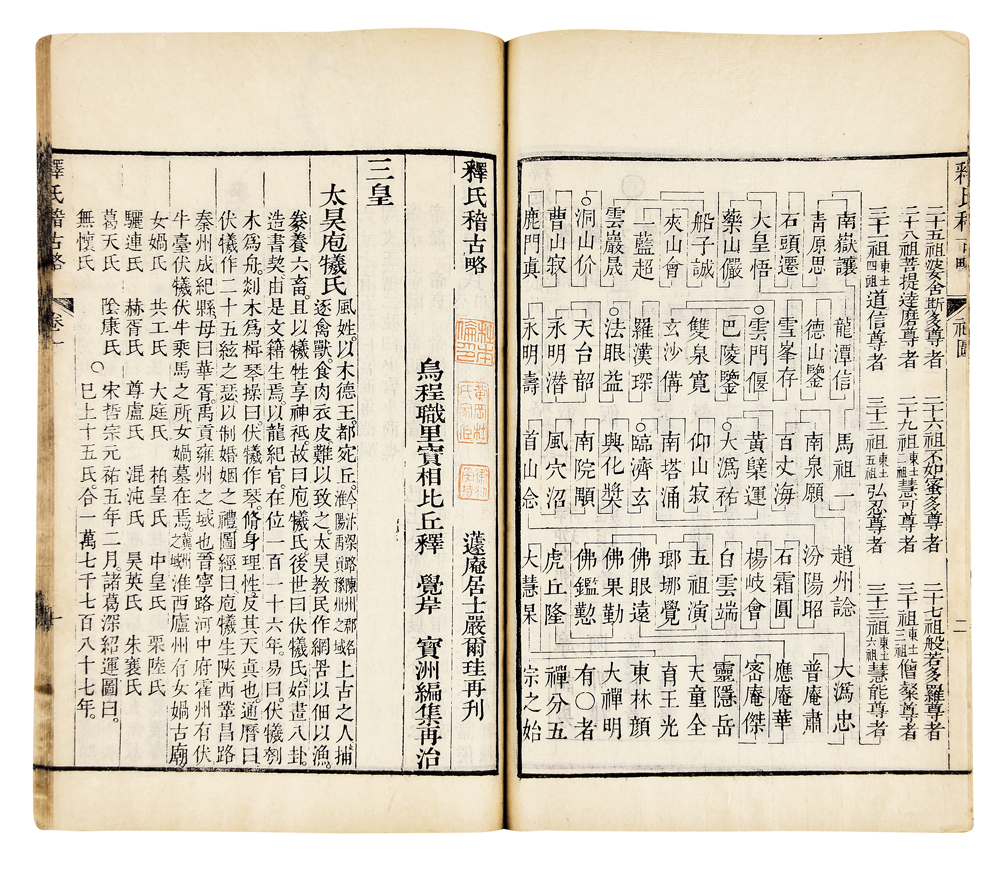 釋氏稽古略 祖圖 二
二十五祖婆舍斯多尊者 二十六祖不如蜜多尊者 二十七祖般若多羅尊者
二十八祖菩提達磨尊者 二十九祖東土二祖慧可尊者 三十祖東土三祖僧璨尊者
三十一祖東土四祖道信尊者 三十二祖東土五祖弘忍尊者 三十三祖東土六祖慧能尊者
南嶽讓 龍潭信 馬祖一 趙州諗 大溈忠
青原思 德山鑒 南泉願 汾陽昭 普庵肅
石頭遷 雪峯存 百丈海 石霜圓 應庵華
大皇悟 ○雲門偃 黃檗運 楊岐會 密庵傑
藥山儼 巴陵鑒 ○大溈祐 白雲端 靈隱岳
船子誠 雙泉寬 仰山寂 五祖演 天童全
夾山會 玄沙俻 南塔涌 瑯琊覺 育王光
一藍超 羅漢琛 ○臨濟玄 佛眼遠 東林顏
雲巖晟 ○法眼益 興化奬 佛果勤 大禪明
○洞山价 天台韶 南院顒 佛鑑懃 有○者
曹山寂 永明潜 風穴沼 虎丘隆 禪分五
鹿門眞 永明壽 首山念 大慧杲 宗之始
釋氏稽古略 蘧庵居士嚴爾珪再刊
烏程職里寳相比丘釋 覺岸 寳洲編集再治
三皇
太昊庖犧氏 風姓。以木德王。都宛丘。今汴梁路陳州郡名淮陽禹貢豫州之域 上古之人捕
逐禽獸。食肉衣皮。難以致之。太昊教民作網罟以佃以漁。
豢養六畜。且以犧牲享神祇。故曰庖犧氏後世曰伏犧氏。始畫八卦。
造書契。由是文籍生焉。以龍紀官。在位一百一十六年。易曰。伏犧刳
木爲舟。剡木爲楫。琴操曰。伏犧作琴。脩身理性。反其天真也。通曆曰。
伏犧作二十五絃之瑟。以制婚姻之禮。圖經曰。庖犧生陝西鞏昌路
秦州成紀縣。母曰華胥。禹貢雍州之域也。晉寧路河中府霍州有伏
牛臺。伏犧伏牛乘馬之所。女媧墓在焉。冀州之域 淮西廬州有女媧古廟
女媧氏 共工氏 大庭氏 柏皇氏 中皇氏 栗陸氏
驪連氏 赫胥氏 尊盧氏 混沌氏 昊英氏 朱襄氏
葛天氏 陰康氏 宋哲宗元祐五年二月。諸葛深紹運圖曰。
無懷氏 ○ 巳上十五氏。合一萬七千七百八十七年。
釋氏稽古略 卷一 一